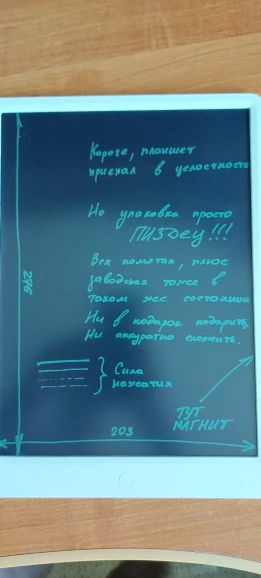 Короче, планшет
приехал в целостности
Но упаковка просто
ПИЗДЕЦ!!!
Вся помятая, плюс
заводская тоже в
таком же состоянии
Ни в подарок подарить,
Ни аккуратно сложить.
276
Сила
нажатия
ТУТ
МАГНИТ
203